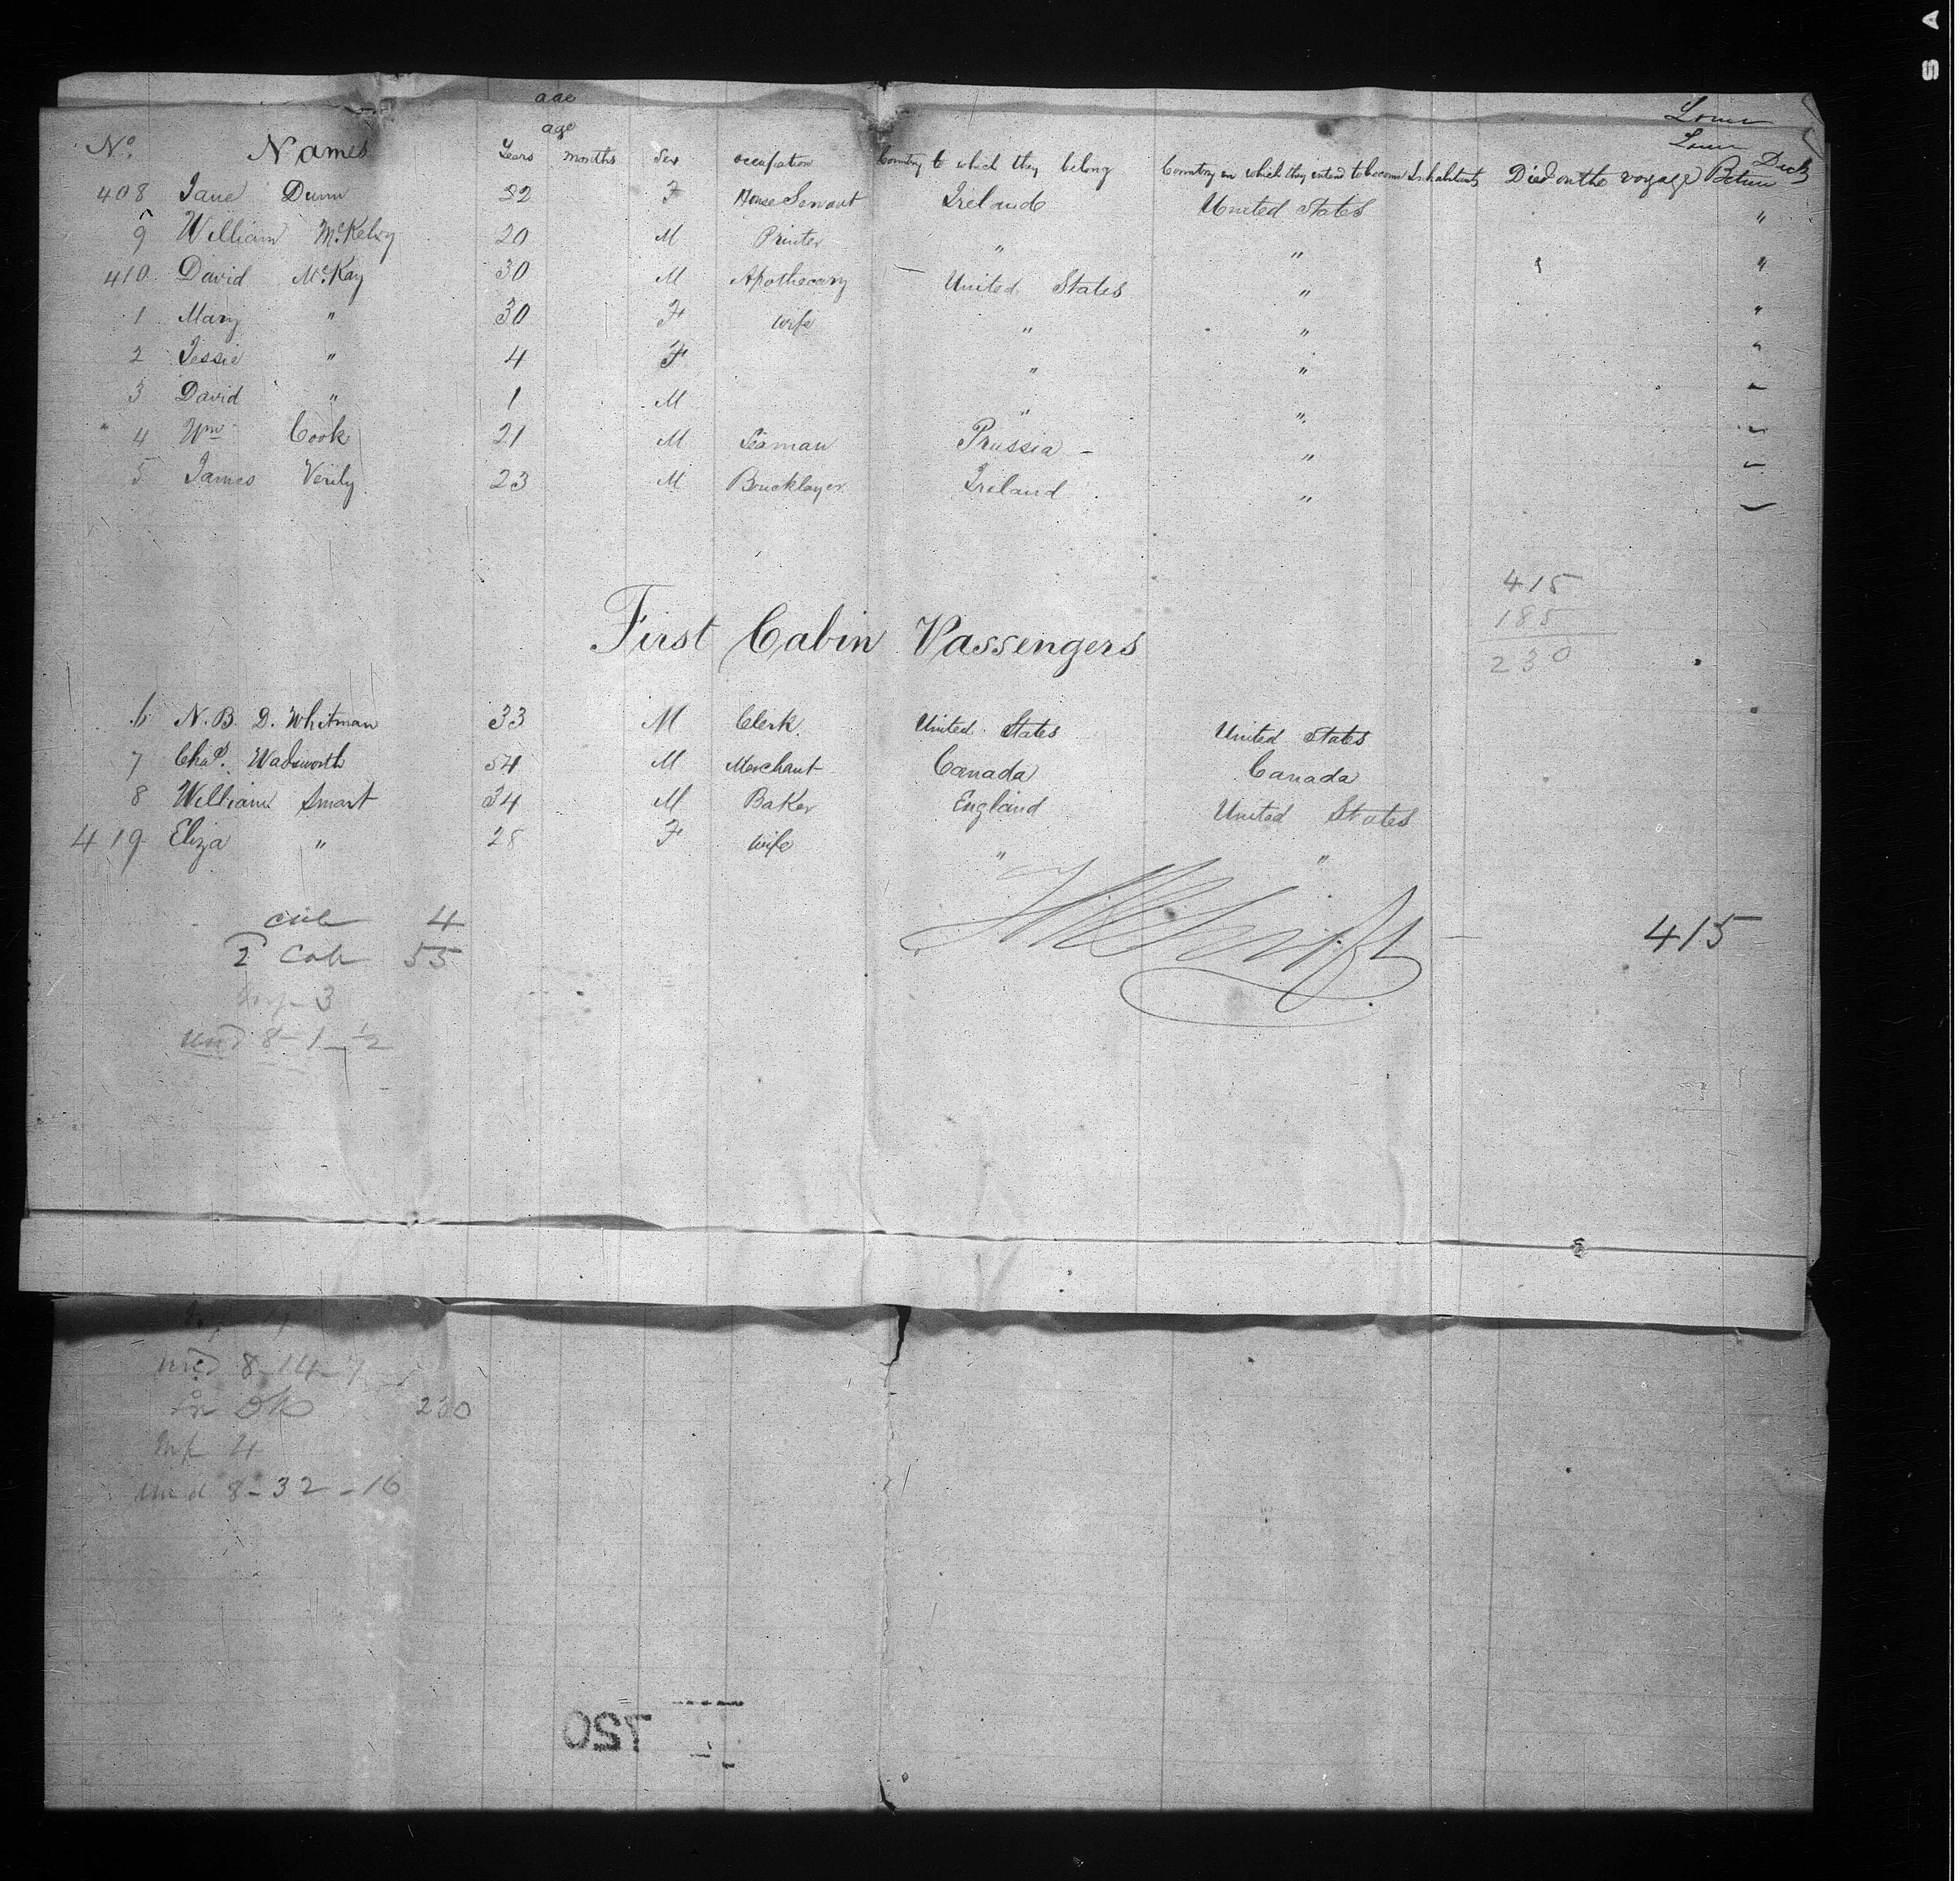 age
age
Lower
Lower Deck
No. Names Years months Sex occupation Country to which they belong Country in which they intend to become Inhabitants Died on the voyage Between
408 Jane Dunn 22 F House Servant Ireland United States "
9 William McKelvy 20 M Printer " " "
410 David McKay 30 M Apothecary United States " "
1 Mary " 30 F wife " " "
2 Jessie " 4 F " "
3 David " 1 M " "
4 Wm Cook 21 M Seaman Prussia - "
5 James Verily 23 M Bricklayer Ireland "
415
185
230
First Cabin Passengers
6 N. B. D. Whitman 33 M Clerk United States United States
7 Chas. Wadsworth 54 M Merchant Canada Canada
8 William Smart 34 M Baker England United States
419 Eliza " 28 F wife " "
4
2 Cab 55
415
Inf - 3
und 8 - 1 - ½
und 8 - 14 - 7
230
Inf 4
und 8 - 32 - 16